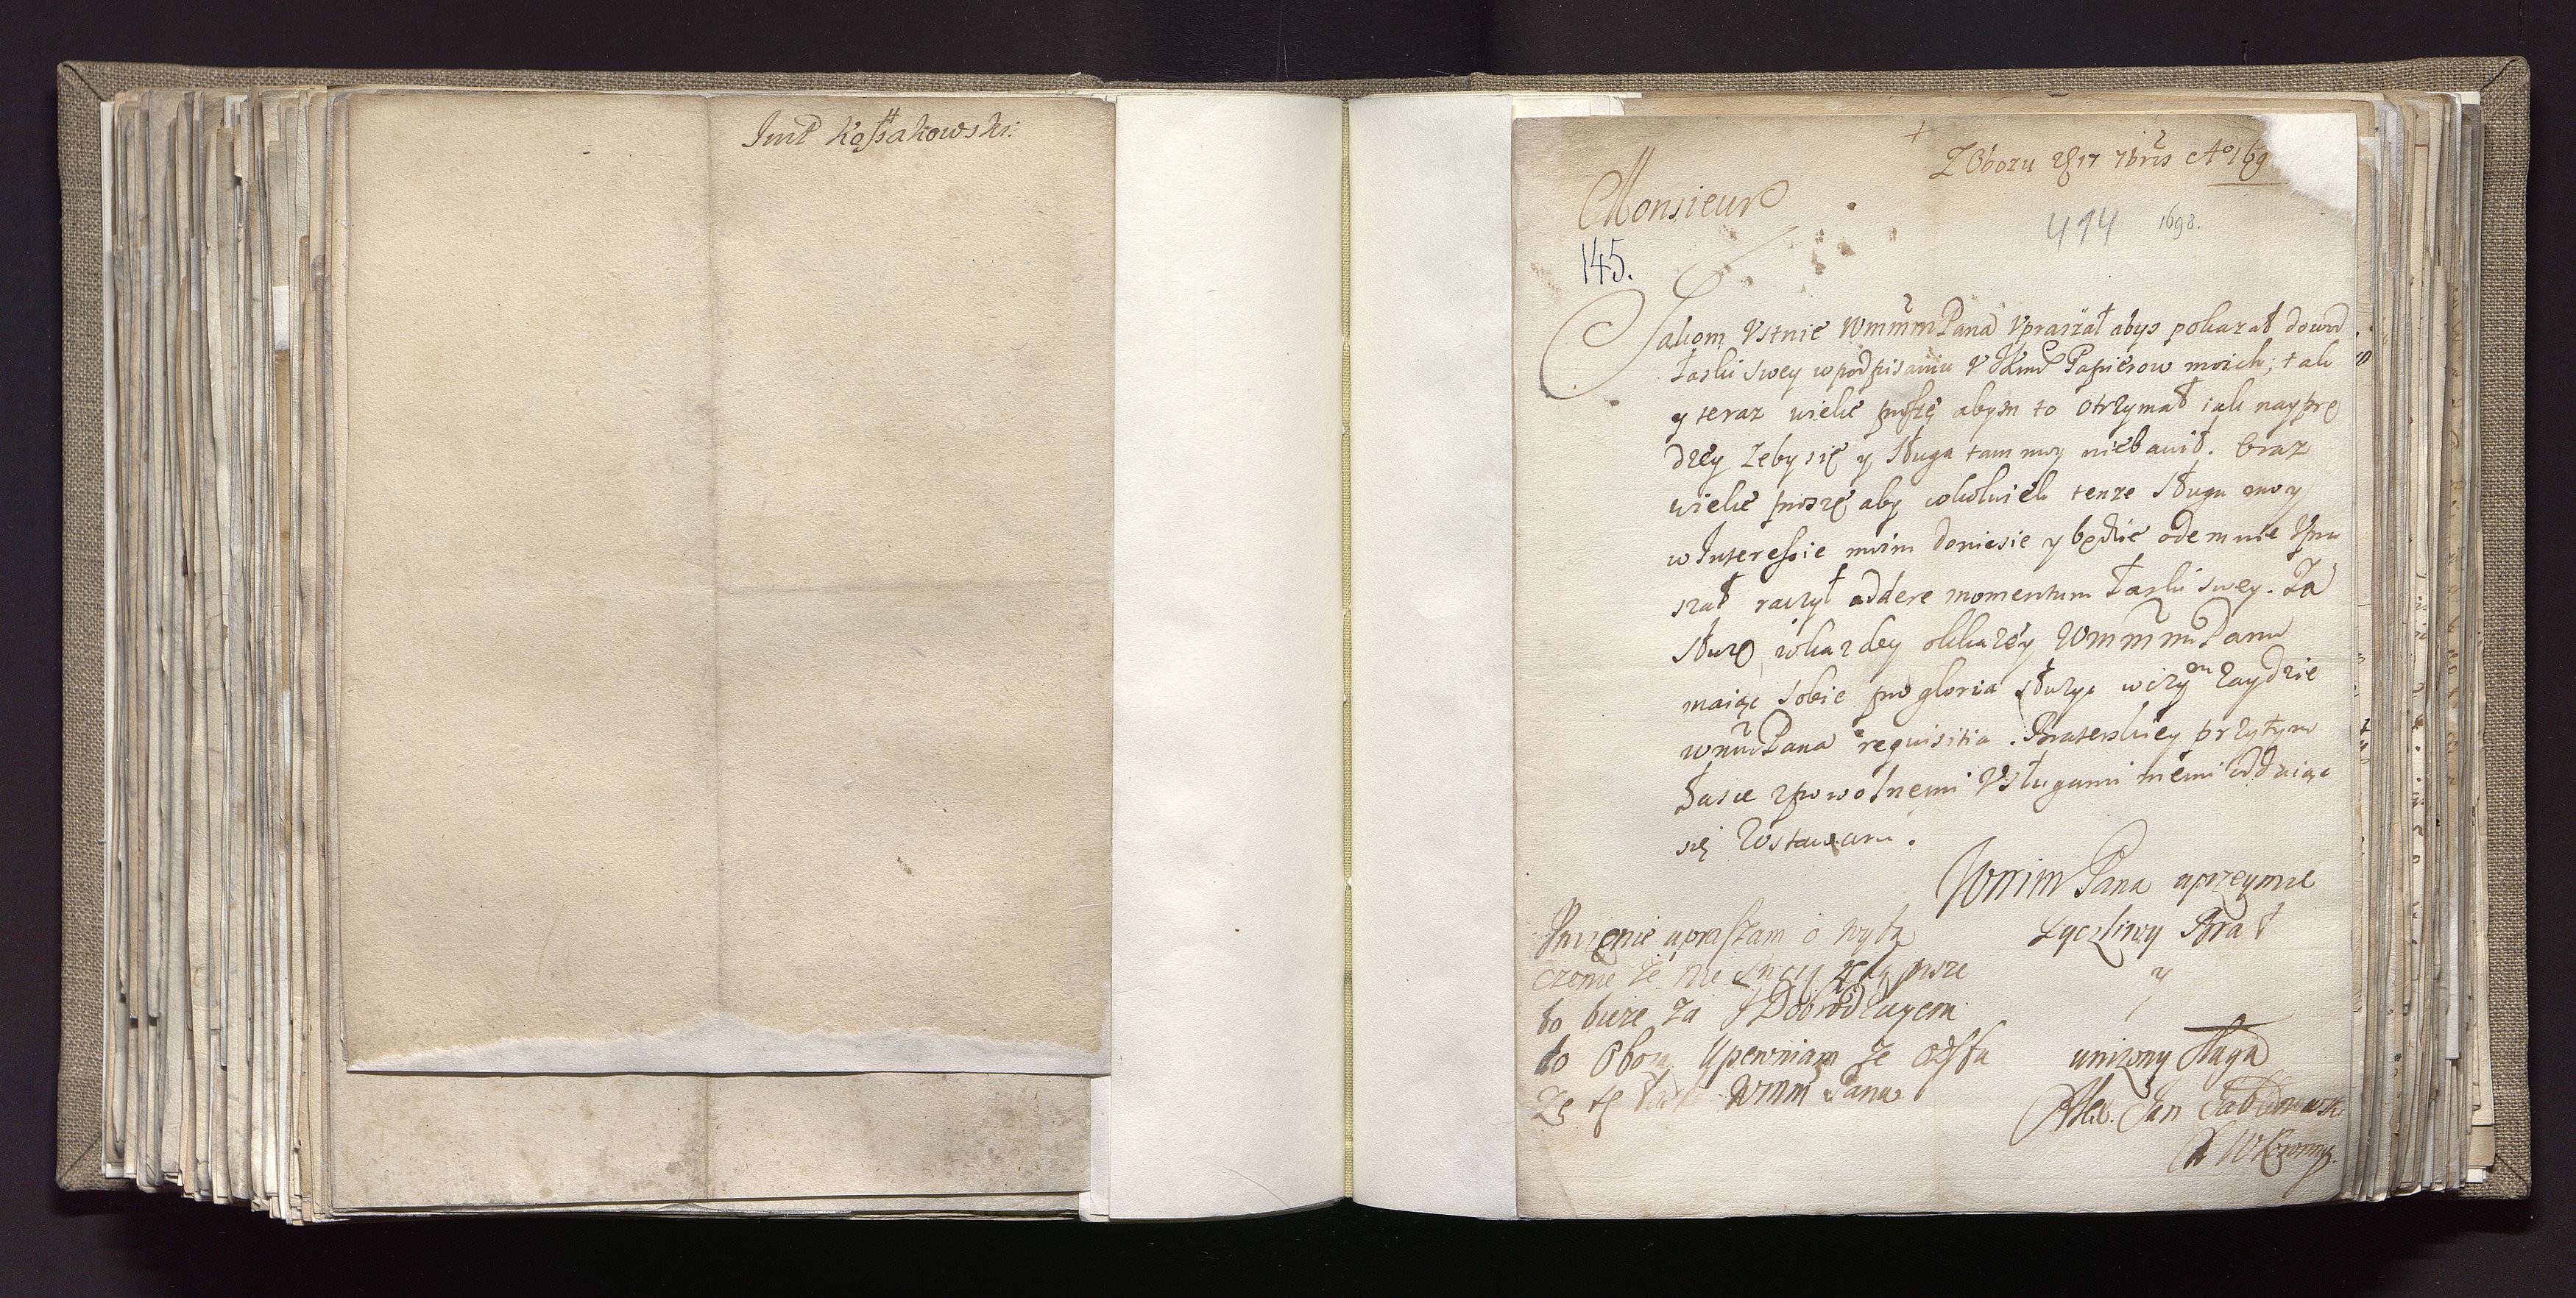 Jmć Kossakowski:
+
Z Obozu d 17 7bris A° 169
Monsieur
414 1698.
145.
Jakom Vstnie WmmmPana Vpraszał abys pokazał dowod
łaski swey wpodpisaniu V Papierow moich; tak
y teraz wielce proszę abym to otrzymał iak naypre
dzey zeby się y sługa tam moy niebawił. Oraz
wielce proszę aby cokolwiek tenze sługa moy
w Interessie moim doniesie y będzie odemnie Vpra
szał raczył addere momentum łaski swey. Za
słuzę wkazdey okkazey Wmmm Panu
maiąc sobie pro gloria służyc wczym zaydzie
wmm Pana requisitia. Braterskiey przytym
łasce zpowolnemi Vsługami memi oddaiąc
się Zostawam.
Wmm Pana uprzeymie
zyczliwy Brat
y
unizony sługa
Alex. Jan Jabłonowski
Ch W Koronny.
upraszam o wyba
czenie ze nie pisze
to bierę za Dobrodzieyem
do Obozu Upewniam ze
zę tę Wmm Pana